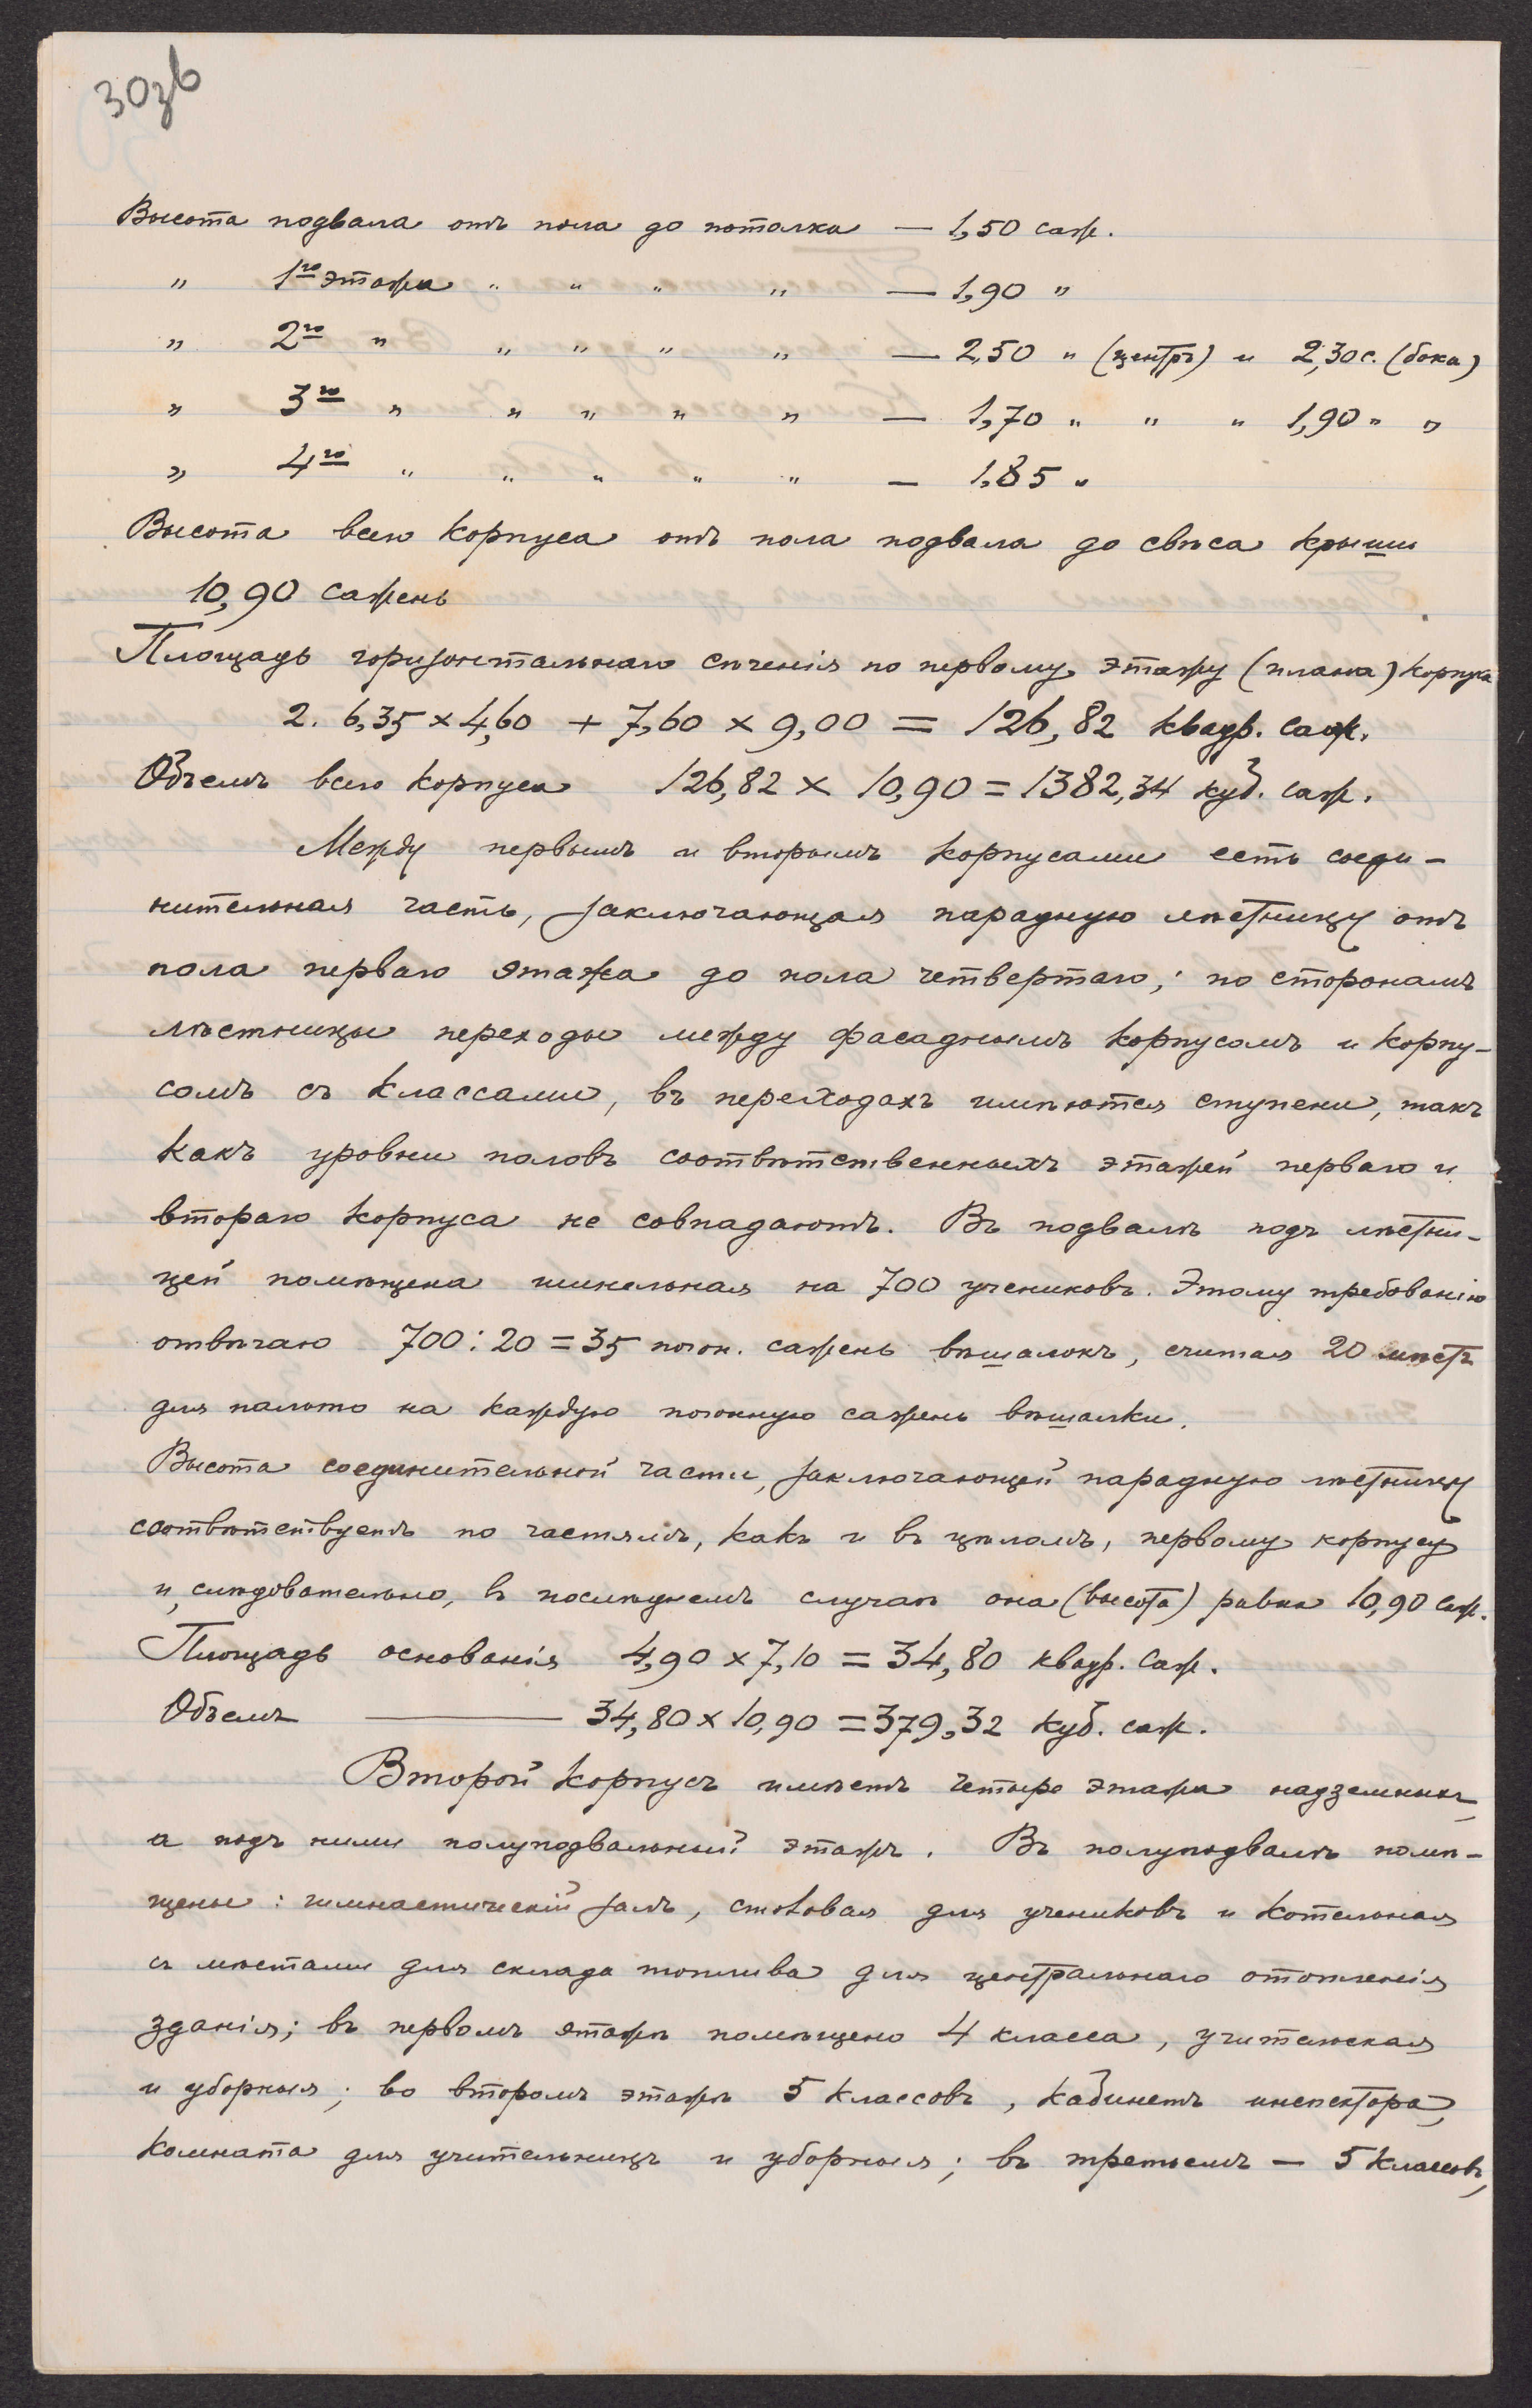 30зв
Высота подвала отъ пола до потолка — 1,50 саж.
" 1го этажа " " " " — 1,90 "
" 2го " " " " " — 2,50 " (центръ) и 2,30 с. (бока)
" 3го " " " " " — 1,70 " " " 1,90 " "
" 4го " " " " " — 1,85 "
Высота всего корпуса отъ пола подвала до свѣса крыши
10,90 сажень
Площадь горизонтальнаго сѣченія по первому этажу (плана) корпуса
2. 6,35 × 4,60 + 7,60 × 9,00 = 126,82 квадр. саж.
Объемъ всего корпуса 126,82 × 10,90 = 1382,34 куб. саж.
Между первымъ и вторымъ корпусами есть соеди-
нительная часть, заключающая парадную лѣстницу отъ
пола перваго этажа до пола четвертаго; по сторонамъ
лѣстницы переходы между фасаднымъ корпусомъ и корпу-
сомъ съ классами, въ переходахъ имѣются ступени, такъ
какъ уровни половъ соотвѣтственныхъ этажей перваго и
втораго корпуса не совпадаютъ. Въ подвалѣ подъ лѣстни-
цей помѣщена шинельная на 700 учениковъ. Этому требованію
отвѣчаю 700 : 20 = 35 погон. сажень вѣшалокъ, считая 20 мѣстъ
для пальто на каждую погонную сажень вѣшалки.
Высота соединительной части, заключающей парадную лѣстницу
соотвѣтствуетъ по частямъ, какъ и въ цѣломъ, первому корпусу
и, слѣдовательно, въ послѣднемъ случаѣ она (высота) равна 10,90 саж.
Площадь основанія 4,90 × 7,10 = 34,80 квадр. саж.
Объемъ ——— 34,80 × 10,90 = 379,32 куб. саж.
Второй корпусъ имѣетъ четыре этажа надземныхъ,
а подъ ними полуподвальный этажъ. Въ полуподвалѣ помѣ-
щены: гимнастическій залъ, столовая для учениковъ и котельная
съ мѣстами для склада топлива для центральнаго отопленія
зданія; въ первомъ этажѣ помѣщено 4 класса, учительская
и уборныя; во второмъ этажѣ 5 классовъ, кабинетъ инспектора,
комната для учительницъ и уборныя; въ третьемъ — 5 классовъ,